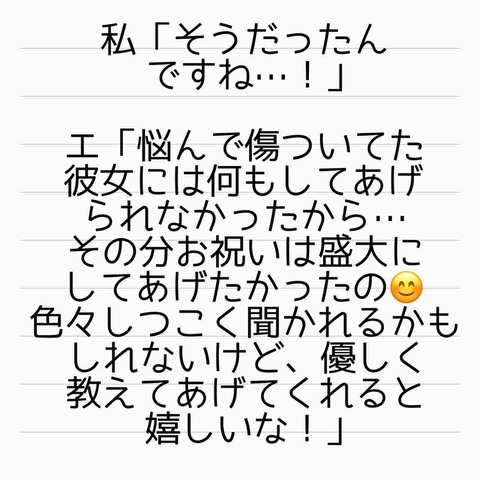 私「そうだったん
ですね…！」
エ「悩んで傷ついてた
彼女には何もしてあげ
られなかったから…
その分お祝いは盛大に
してあげたかったの😊
色々しつこく聞かれるかも
しれないけど、優しく
教えてあげてくれると
嬉しいな！」